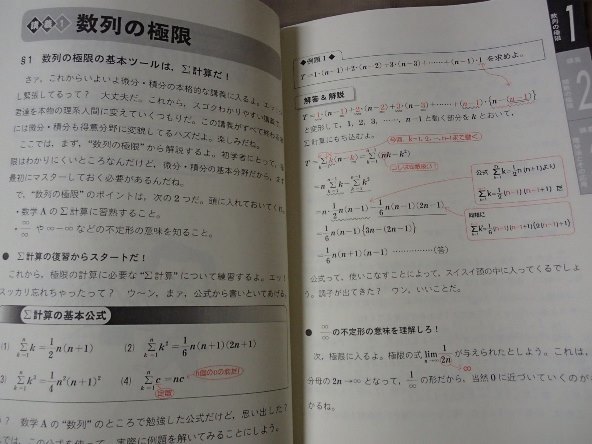 講義 1 数列の極限
§1 数列の極限の基本ツールは，Σ計算だ！
さァ，これからいよいよ微分・積分の本格的な講義に入るよ。エッ，
し緊張してるって？ 大丈夫だ。これから，スゴクわかりやすい講義で
君達を本物の理系人間に変えていくつもりだ。この講義がすべて終わる
には微分・積分も得意分野に変貌してるハズだよ。楽しみだね。
ここでは，まず，“数列の極限”から解説するよ。初学者にとって，
限はわかりにくいところなんだけど，微分・積分の基本分野だから，まず
最初にマスターしておく必要があるんだね。
で，“数列の極限”のポイントは，次の2つだ。頭に入れておいてくれ。
・数学AのΣ計算に習熟すること。
・∞/∞ や∞−∞などの不定形の意味を知ること。
● Σ計算の復習からスタートだ！
これから，極限の計算に必要な“Σ計算”について練習するよ。エッ！
スッカリ忘れちゃったって？ ウ〜ン，まァ，公式から書いといてあげる。
Σ計算の基本公式
(1) Σ[k=1→n] k = 1/2 n(n+1) (2) Σ[k=1→n] k² = 1/6 n(n+1)(2n+1)
(3) Σ[k=1→n] k³ = 1/4 n²(n+1)² (4) Σ[k=1→n] c = nc
n個のcの和だ！
定数
？ 数学Aの“数列”のところで勉強した公式だけど，思い出した？
では，この公式を使って，実際に例題を解いてみることにしよう。
数列の極限 1
2
◆例題1◆
T=1·(n−1)+2·(n−2)+3·(n−3)+……+(n−1)·1 を求めよ。
解答＆解説
T=1·(n−1)+2·(n−2)+3·(n−3)+……+(n−1)·{n−(n−1)}
と変形して，1，2，3，……，n−1と動く部分をkとおいて，
Σ計算にもち込むよ。
今回，k=1, 2, …, n−1まで動く
T=Σ[k=1→n−1] k(n−k)=Σ[k=1→n−1] (nk−k²)
=nΣ[k=1→n−1] k−Σ[k=1→n−1] k²
=n·1/2 n(n−1)−1/6 n(n−1)(2n−1)
=1/6 n(n−1){3n−(2n−1)}
=1/6 n(n−1)(n+1) ……………(答)
公式って，使いこなすことによって，スイスイ頭の中に入ってくるでしょ
う。調子が出てきた？ ウン，いいことだ。
● ∞/∞ の不定形の意味を理解しろ！
次，極限に入るよ。極限の式 lim[n→∞] 1/2n が与えられたとしよう。これは，
分母の2n→∞となって，1/∞ の形だから，当然0に近づいていくのが
かるね。